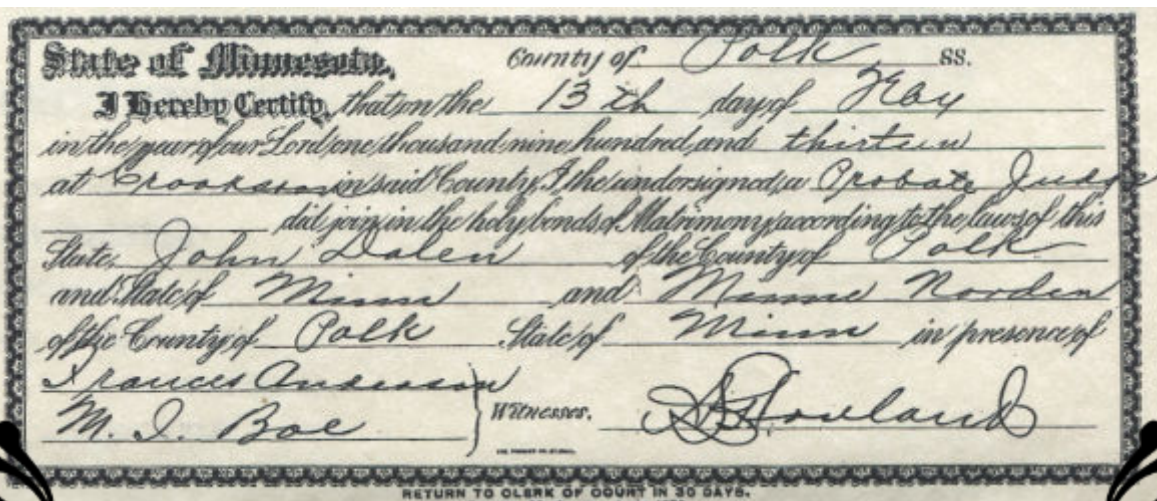 State of Minnesota, County of Polk SS.
I Hereby Certify, that on the 13th day of May
in the year of our Lord one thousand nine hundred and thirteen
at Crookston in said County, I the undersigned, a Probate Judge
did join in the holy bonds of Matrimony according to the laws of this
State, John Dalen of the County of Polk
and State of Minn and Minnie Norden
of the County of Polk State of Minn in presence of
Frances Anderson
M. I. Boe Witnesses. Rowland
RETURN TO CLERK OF COURT IN 30 DAYS.